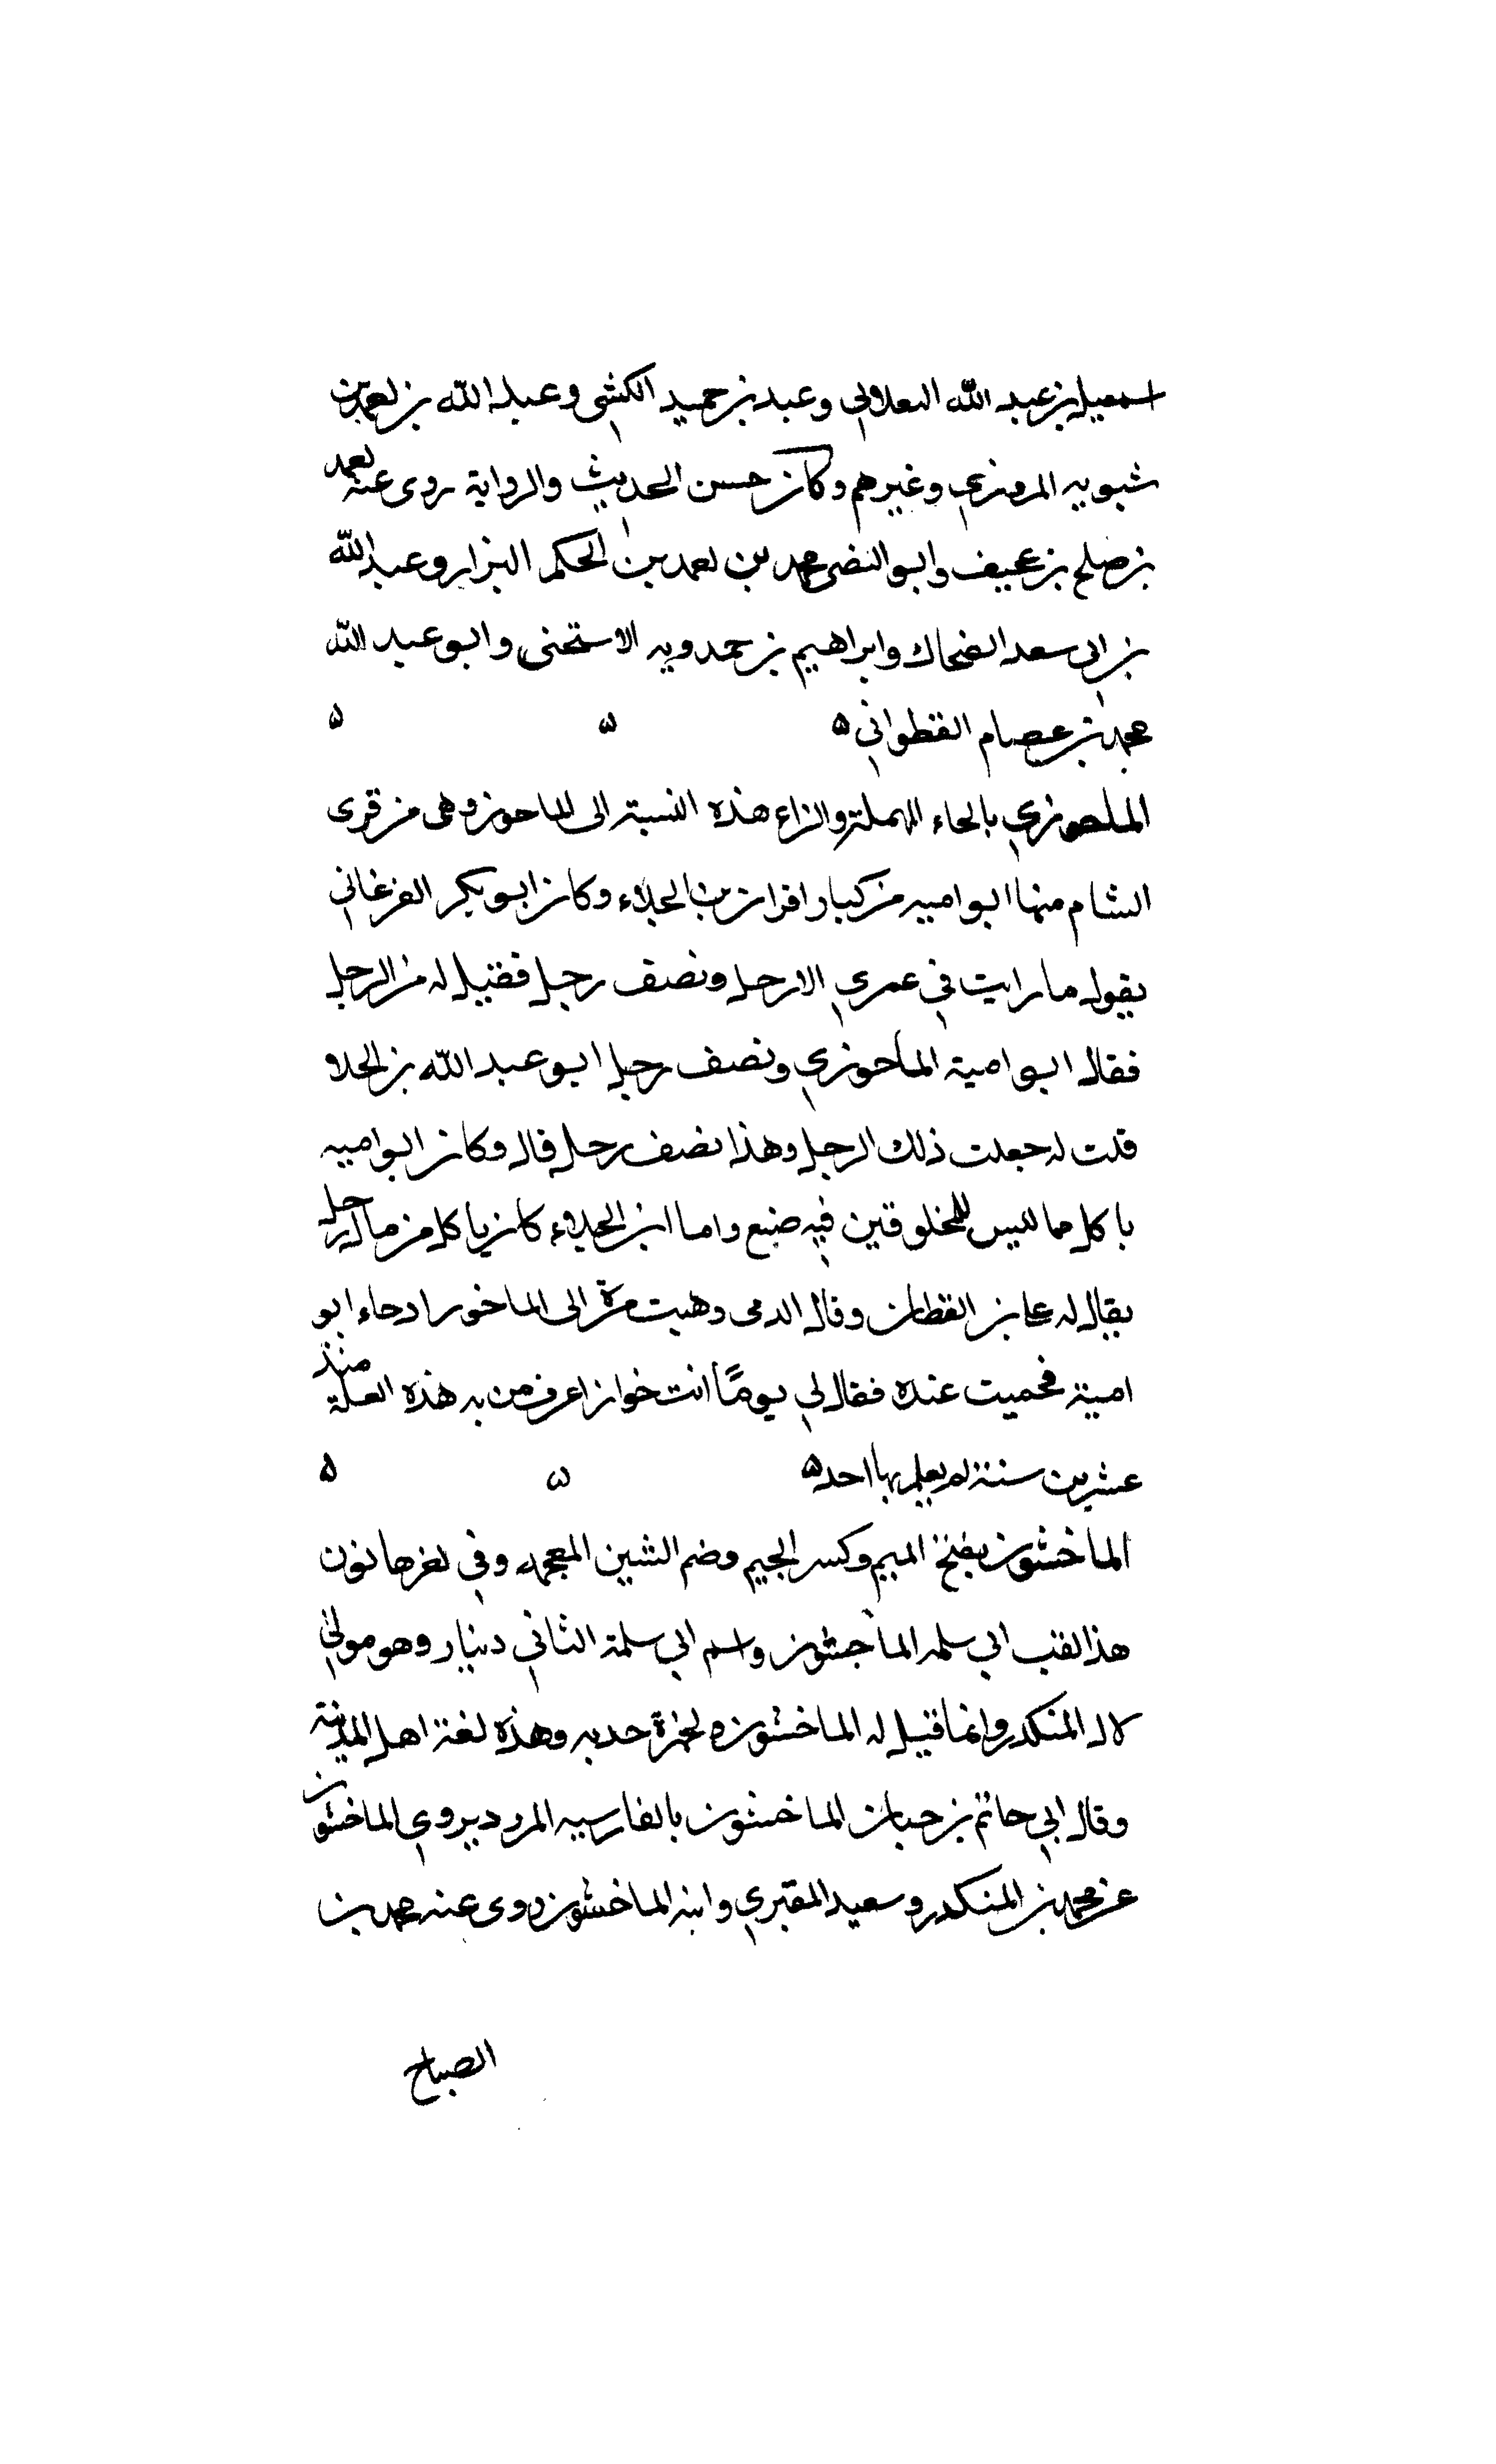 اسمعيل بن عبد الله البعلاولي وعبد بن حميد الكشي وعبد الله بن احمد بن
شبويه المروزي وغيرهم وكان حسن الحديث والرواية روى عنه احمد
بن صلح بن عجيف وابو النضر محمد بن احمد بن الحكم البزار وعبد الله
بن ابي سعد الضحاك وابراهيم بن حمدويه الاستحنى وابو عبد الله
محمد بن عصام القطواني ه ه ه
الماحوزي بالحاء المهملة والزاء هذه النسبة الى الماحوز وهي من قرى
الشام منها ابو اميه من كبار اقران بن الجلاء وكان ابو بكر الفرغاني
يقول ما رايت في عمري الا رجل ونصف رجل فقيل له من الرجل
فقال ابو امية الماحوزي ونصف رجل ابو عبد الله بن الجلا
قلت له جعلت ذلك الرجل وهذا نصف رجل قال وكان ابو اميه
ياكل مما ليس للمخلوقين فيه صنع واما ابن الجلاء كان ياكل من مال رجل
يقال له على بن القطان وقال الدمى ذهبت مرة الى الماخور اذ جاء ابو
امية فحميت عنده فقال لي يوما انت خوار اعرف من به هذه العلة منذ
عشرين سنة لم يعلم بها احد ه ه ه
الماخشون بفتح الميم وكسر الجيم وضم الشين المعجمه وفي اخرها نون
هذا لقب ابي سلمه الماجشون واسم ابي سلمة الثاني دينار وهو مولى
لال المنكدر وانما قيل له الماخشون لحمزة خديه وهذه لغة اهل المدينة
وقال ابي حاتم بن حبان الماخشون بالفارسيه المورد يروي الماخشون
عن محمد بن المنكدر وسعيد المقبري وابنه الماخشون روى عنه محمد بن
الصباح